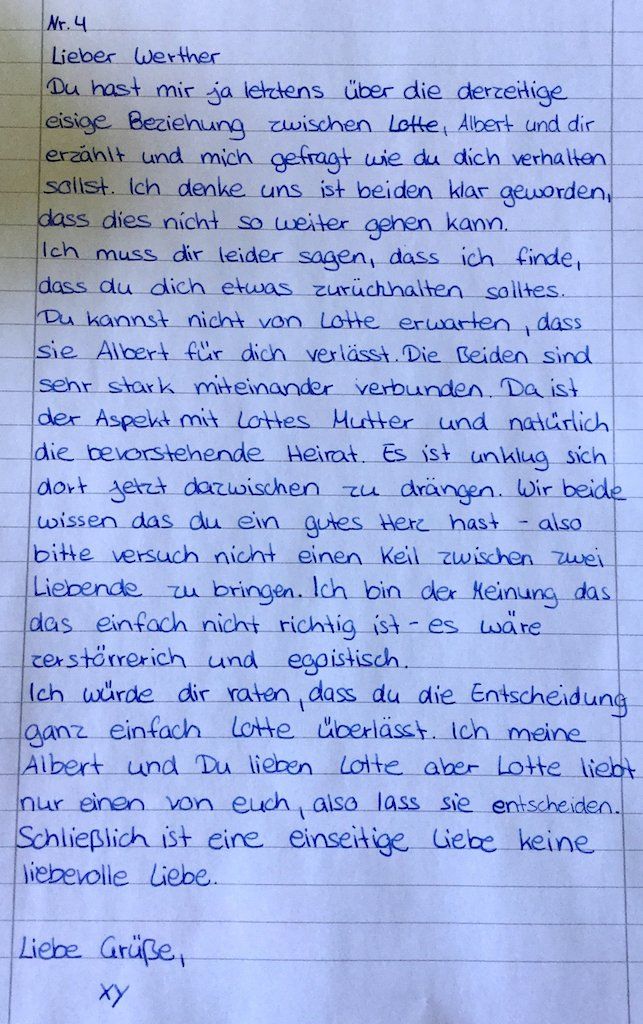 Nr. 4
Lieber Werther
Du hast mir ja letztens über die derzeitige
eisige Beziehung zwischen Lotte, Albert und dir
erzählt und mich gefragt wie du dich verhalten
sollst. Ich denke uns ist beiden klar geworden,
dass dies nicht so weiter gehen kann.
Ich muss dir leider sagen, dass ich finde,
dass du dich etwas zurüchhalten solltes.
Du kannst nicht von Lotte erwarten, dass
sie Albert für dich verlässt. Die Beiden sind
sehr stark miteinander verbunden. Da ist
der Aspekt mit Lottes Mutter und natürlich
die bevorstehende Heirat. Es ist unklug sich
dort jetzt dazwischen zu drängen. Wir beide
wissen das du ein gutes Herz hast - also
bitte versuch nicht einen Keil zwischen zwei
Liebende zu bringen. Ich bin der Meinung das
das einfach nicht richtig ist - es wäre
zerstörrerich und egoistisch.
Ich würde dir raten, dass du die Entscheidung
ganz einfach Lotte überlässt. Ich meine
Albert und Du lieben Lotte aber Lotte liebt
nur einen von euch, also lass sie entscheiden.
Schließlich ist eine einseitige Liebe keine
liebevolle Liebe.
Liebe Grüße,
xy